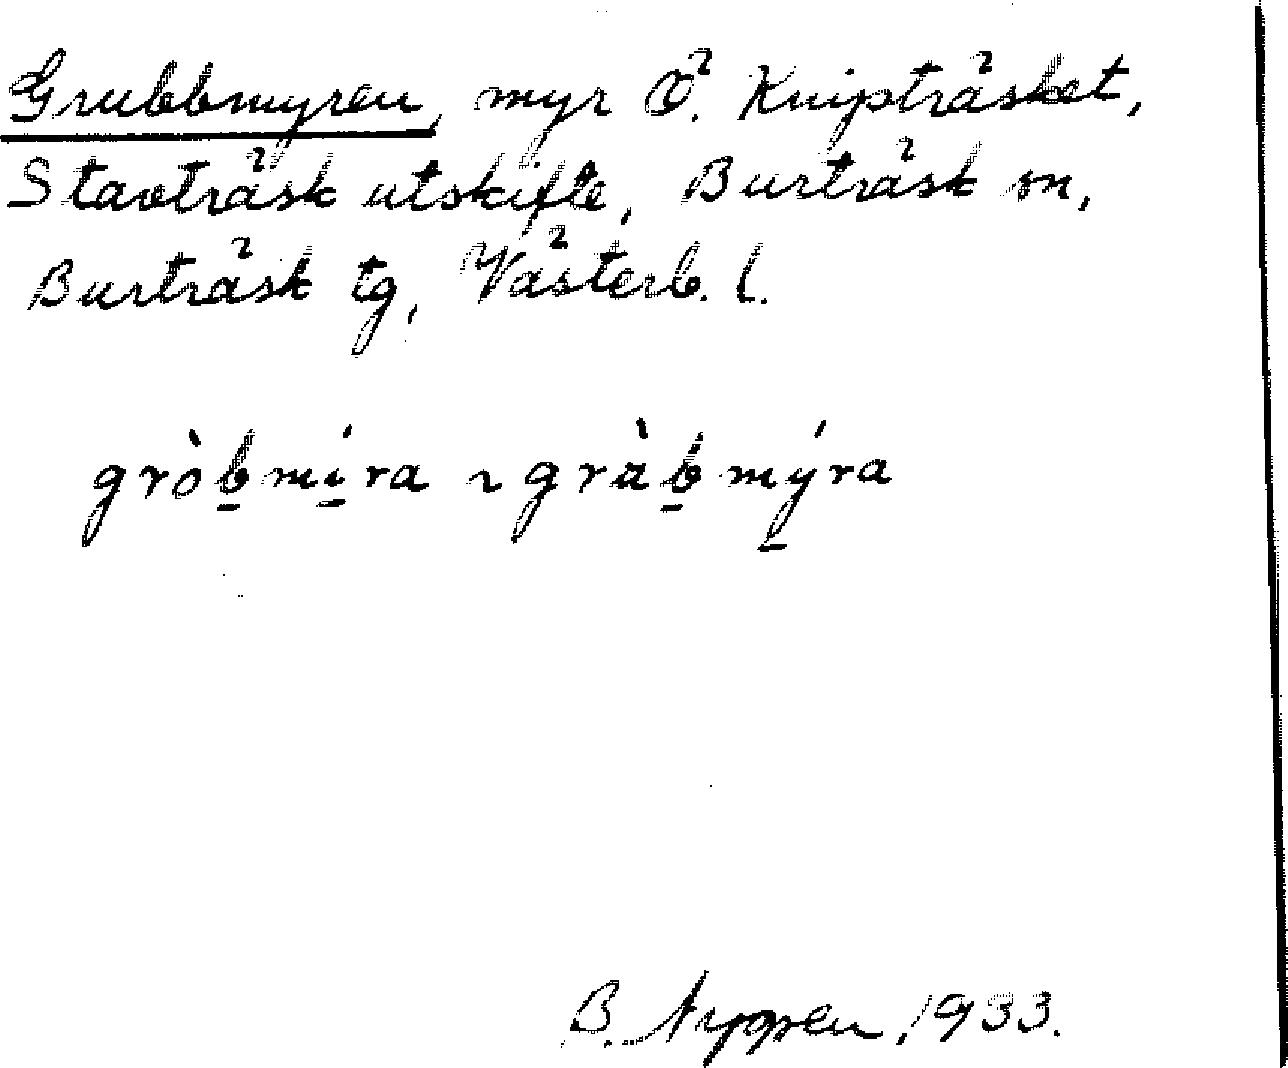 Grubbmyren, myr Ö. Knipträsket,
Stavträsk utskifte, Burträsk sn,
Burträsk tg, Västerb. l.
gròb̠mí̠ra ~ gràb̠mý̠ra
B. 1933.